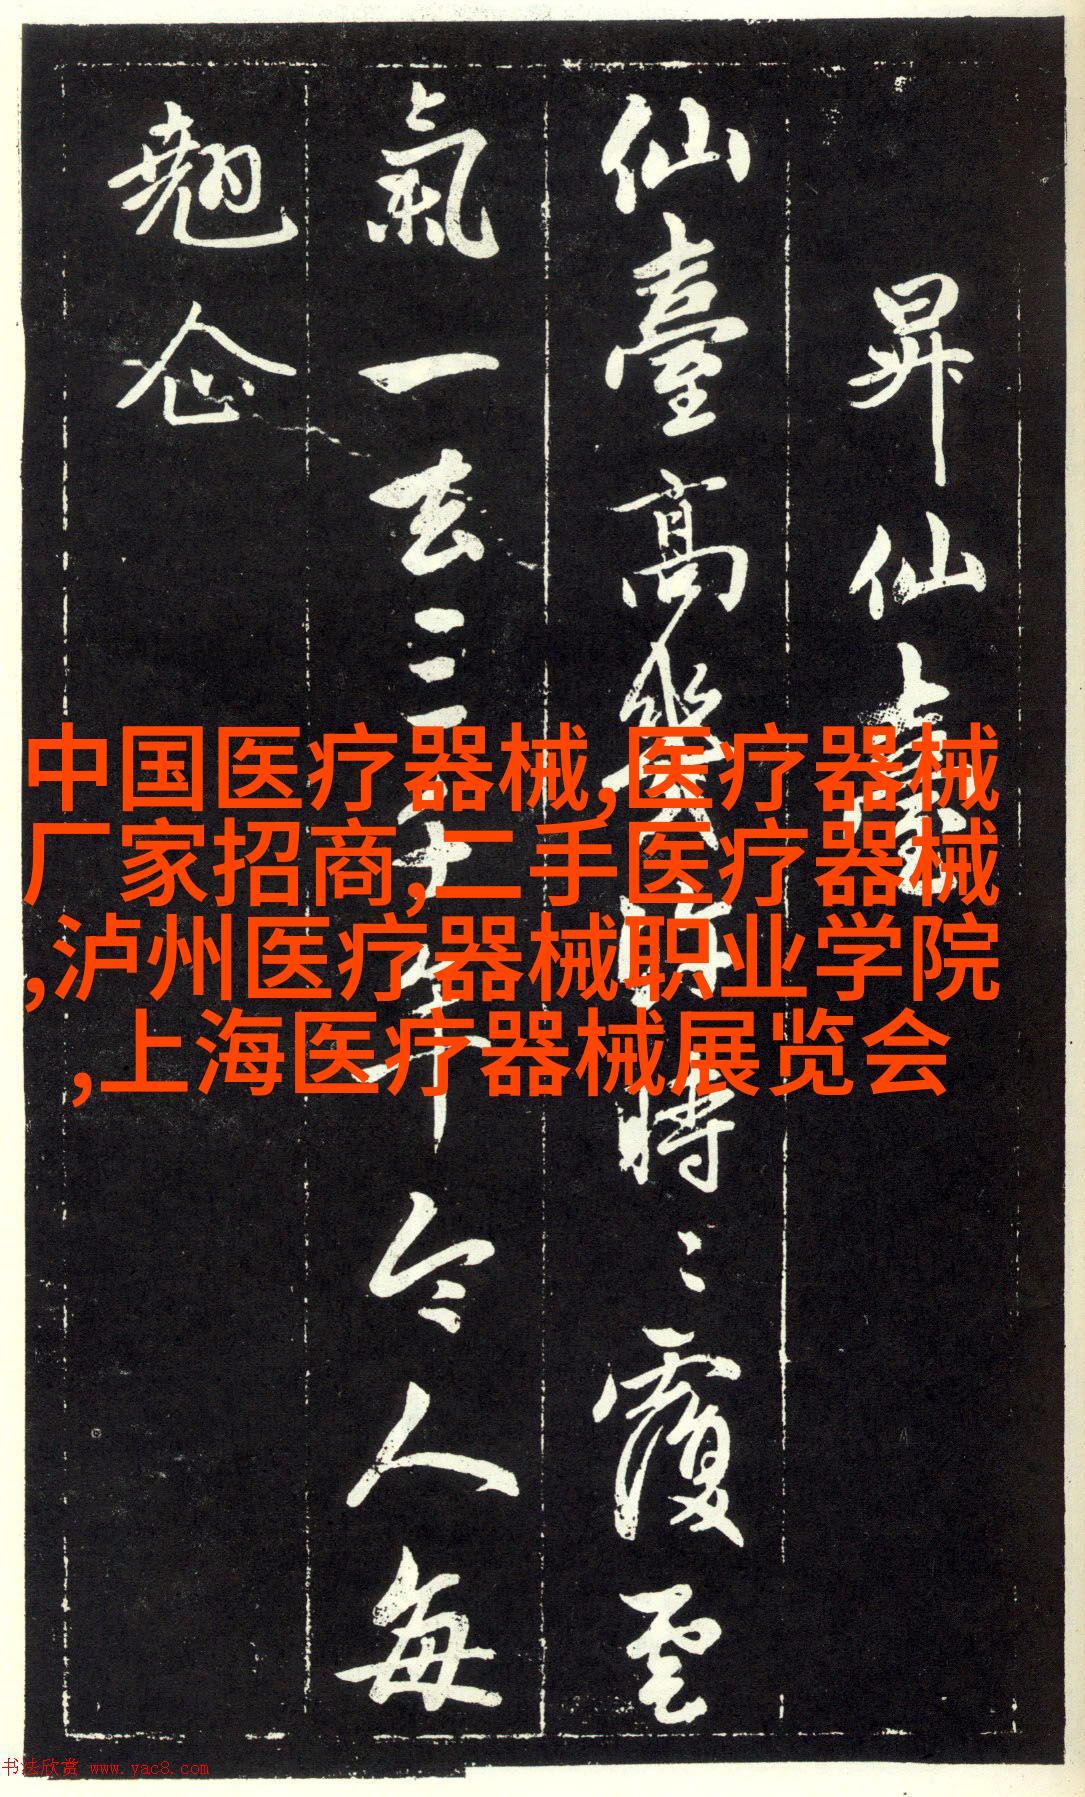 昇仙臺
仙臺高幾許時〻覆雲
氣一去三千年令人每
翹企
中国医疗器械,医疗器械
厂家招商,二手医疗器械
,泸州医疗器械职业学院
,上海医疗器械展览会
书法欣赏 www.yac8.com